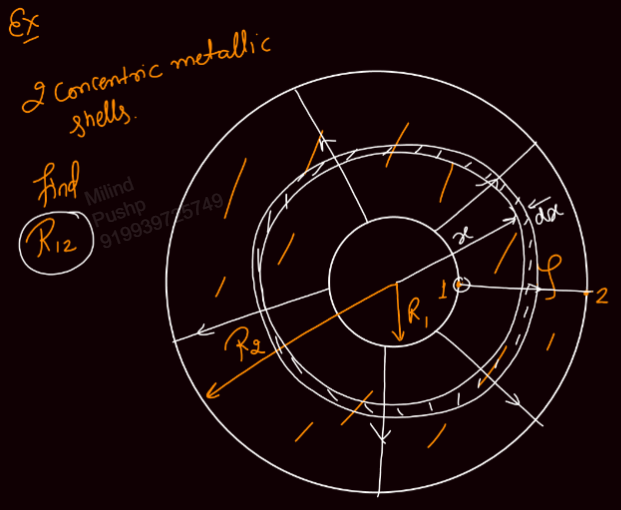 Ex
2 concentric metallic
shells.
find
R12
Milind
Pushp
919939725749
x
dx
1
ρ
2
R1
R2